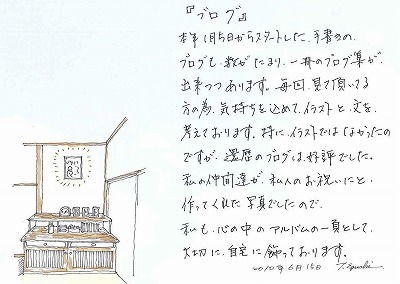 『ブログ』
本年1月5日からスタートした、手書きの、
ブログも、数がたまり、一冊のブログ集が、
出来つつあります。毎回、見て頂いてる
方の為、気持ちを込めて、イラストと、文を、
考えております。特に、イラストではなかったの
ですが、還暦のブログは、好評でした。
私の仲間達が、私のお祝いにと、
作ってくれた写真でしたので、
私も、心の中のアルバムの一頁として、
大切に、自宅に飾っております。
2010年6月15日